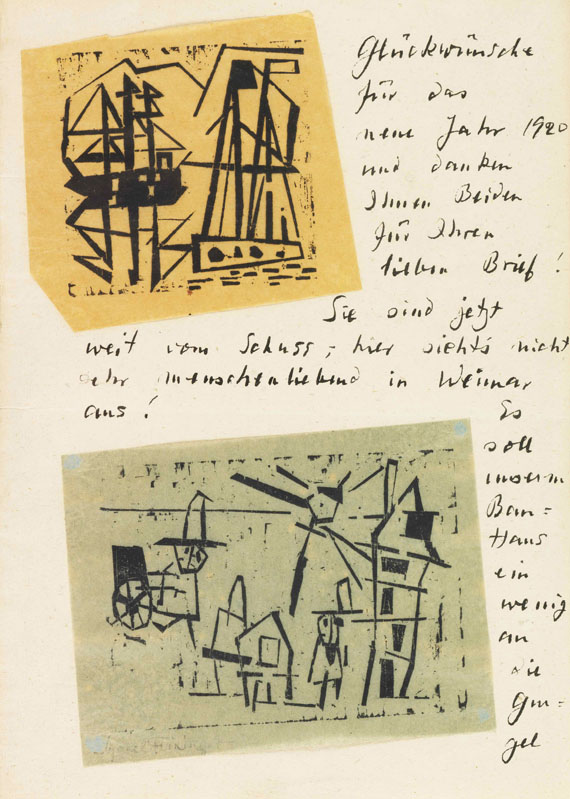 Glückwünsche
für das
neue Jahr 1920
und danken
Ihnen Beiden
für Ihren
lieben Brief!
Sie sind jetzt
weit vom Schuss, hier siehts nicht
sehr menschenliebend in Weimar
aus!
Es
soll
unserm
Bau=
Haus
ein
wenig
an
die
Gur=
gel